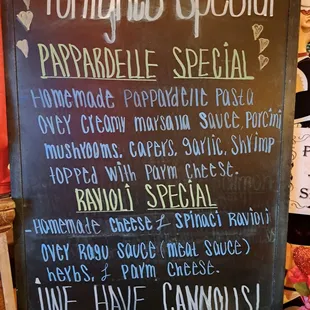 Tonights Special
PAPPARDELLE SPECIAL
Homemade Pappardelle Pasta
over creamy marsalla sauce, Porcini
mushrooms, capers, garlic, shrimp
topped with Parm Cheese.
RAVIOLI SPECIAL
-Homemade cheese & Spinaci Ravioli
over Ragu Sauce (meat sauce)
herbs, & Parm Cheese.
WE HAVE CANNOLIS!